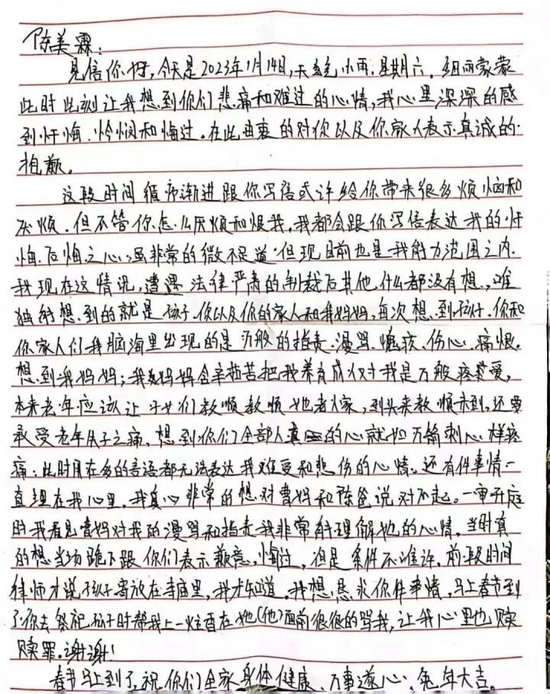 陈美霖:
见信你好,今天是2023年1月14日,天气小雨,星期六,细雨蒙蒙
此时此刻让我想到你们悲痛和难过的心情,我心里深深的感
到忏悔、怜悯和悔过。在此由衷的对你以及你家人表示真诚的
抱歉。
这段时间循序渐进跟你写信或许给你带来很多烦恼和
厌烦。但不管你怎么厌烦和恨我,我都会跟你写信表达我的忏
悔。后悔之心虽非常的微不足道,但现目前也是我能力范围之内。
我现在这情况,遭遇法律严肃的制裁后其他什么都没有想,唯
独能想到的就是孩子、你以及你的家人和我妈妈,每次想到孩子、你和
你家人们我脑海里出现的是万般的指责、漫骂、愤孩、伤心、痛恨。
想到我妈妈;我妈妈含辛茹苦把我养育成人对我是万般疼爱,
本来老年应该让子女们孝顺孝顺她老人家,到头来孝顺未到,还要
承受老年失子之痛。想到你们全部人真的心就如万箭刺心一样疼
痛;此时用在多的言语都无法表达我难受和悲伤的心情。还有件事情一
直埋在我心里。我真心非常的想对曹妈和陈爸说对不起。一审开庭
时我看见曹妈对我的漫骂和指责我非常能理解她的心情。当时真
的想当场跪下跟你们表示歉意、悔过,但是条件不准许。前段时间
律师才说孩子寄放在寺庙里,我才知道。我想恳求你件事情,马上春节到
了你去祭祀孩子时帮我上一炷香在她(他)面前很很的骂我,让我心里也赎
赎罪。谢谢!
春节马上到了,祝你们全家身体健康、万事遂心、兔年大吉。